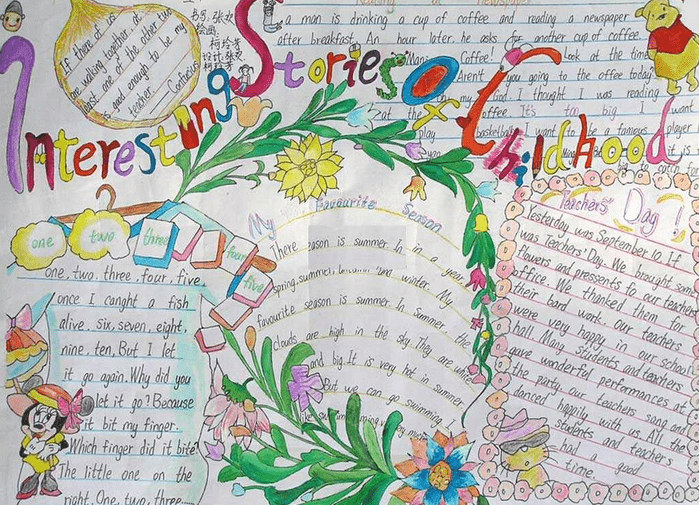 Reading a newspaper
a man is drinking a cup of coffee and reading a newspaper
after breakfast. An hour later, he asks for another cup of coffee.
Coffee! Look at the time
Aren't you going to the coffee today
God. I thought I was reading
at the coffee It's too big I want
play basketball I want to be a famous player
If there
are walking together, at
least one of the other two
is good enough to be my
teacher. — Confucius
书写:张
绘画:
Interesting Stories of Childhood
one two three four five
one, two, three, four, five,
once I canght a fish
alive. six, seven, eight,
nine, ten, But I let
it go again. Why did you
let it go? Because
it bit my finger.
Which finger did it bite
The little one on the
right. One, two, three......
My Favourite Season
There season is summer. In in a year,
spring, summer, and winter. My
favourite season is summer. In summer, the
clouds are high in the sky. They are white
and big. It is very hot in summer.
But we can go swimming. I
like swimming very
Teachers' Day!
Yesterday was September 10. If
was Teachers' Day. We brought some
flowers and pressents fo our teachers'
office. We thanked them for
their bard work. Our teachers
were very happy in our school
hall. Many students and teachers
gave wonderful performances at
the party. our teachers song and
danced happily with us. All the
students and teachers
had a good
time.